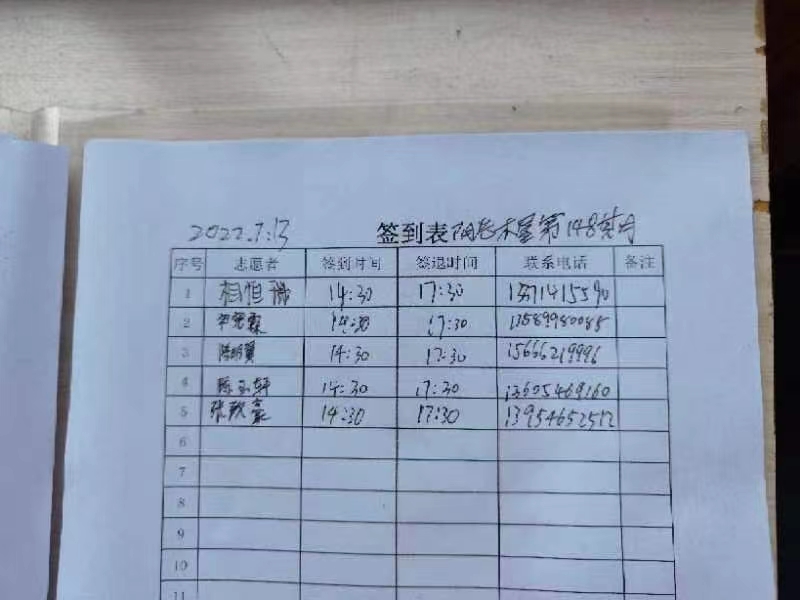 2022.7.13 签到表 木星第148
序号 志愿者 签到时间 签退时间 联系电话 备注
1 14:30 17:30
2 14:30 17:30 13589980088
3 陈明翼 14:30 17:30 15666219996
4 陈玉轩 14:30 17:30 13605469160
5 张歆豪 14:30 17:30 13954652512
6
7
8
9
10
11